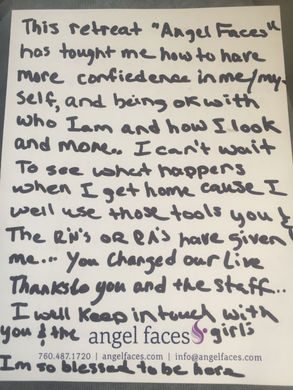 This retreat "Angel Faces"
has tought me how to have
more confiedence in me/my-
self, and being ok with
who I am and how I look
and more.. I can't wait
To see what happens
when I get home cause I
well use those tools you &
The RN's OR PA's have given
me... You Changed our Live
Thanks to you and the staff..
I well Keep in touch with
you & the angel faces girls
760.487.1720 | angelfaces.com | info@angelfaces.com
Im so blessed to be here